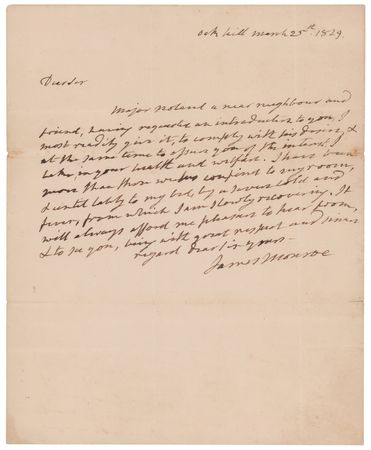 Oak hill march 25th. 1829.
Dear Sir
Major Noland a near neighbour and
friend, having requested an introduction to you, I
most readily give it, to comply with his desire, &
at the same time to assure you of the interest I
take, in your health and welfare. I have been
more than three weeks confind to my room,
& until lately to my bed, by a severe cold and
fever, from which I am slowly recovering. It
will always afford me pleasure to hear from,
& to see you, being with great respect and sincere
regard dear sir yours—
James Monroe